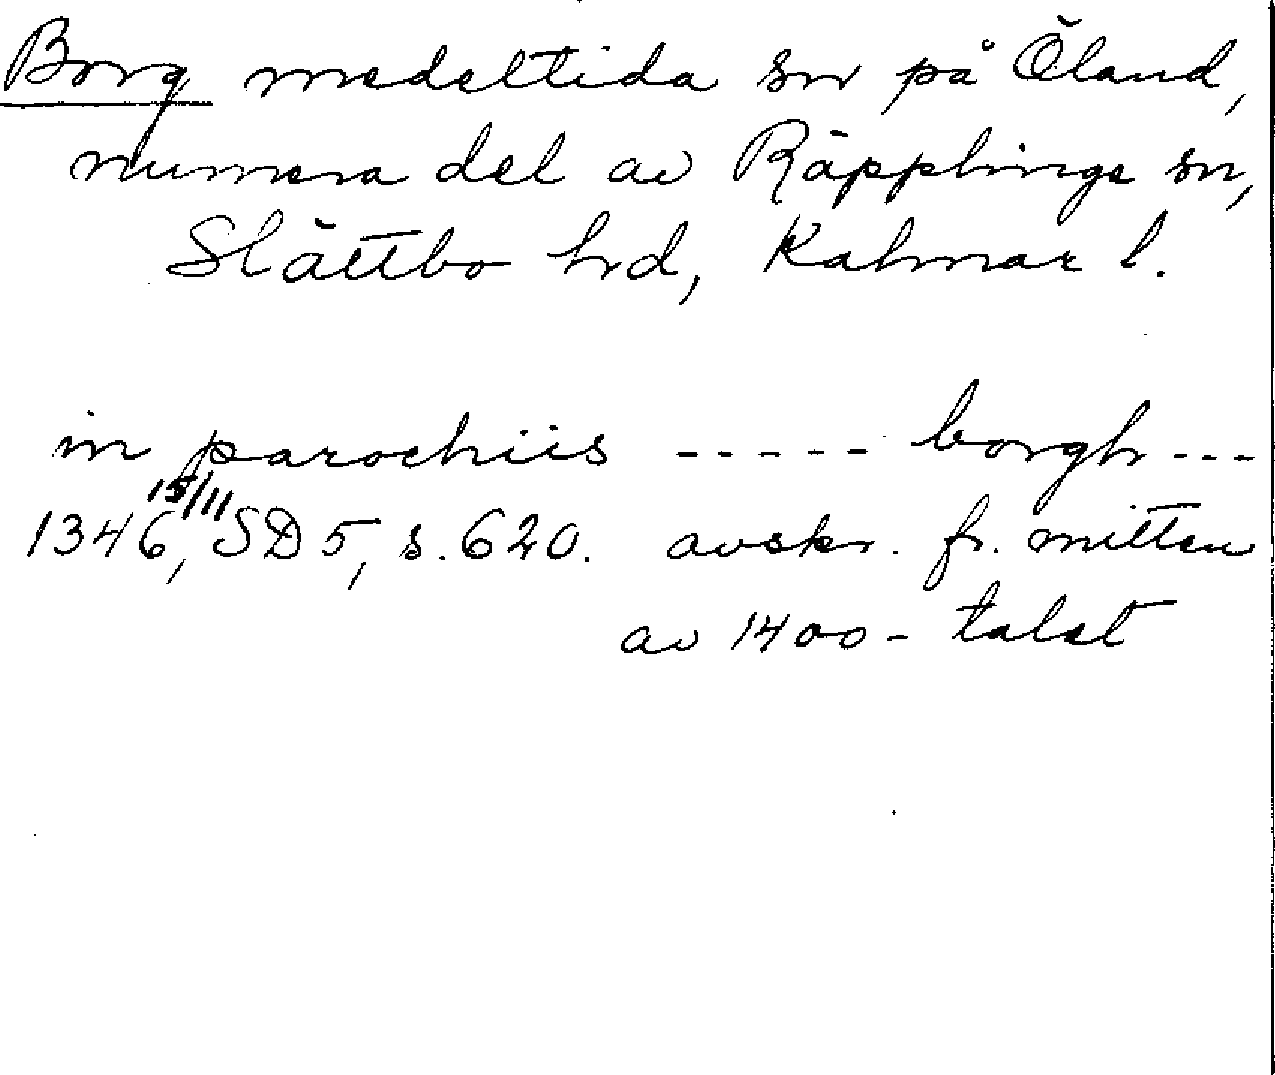 Borg medeltida sn på Öland,
numera del av Räpplinge sn,
Slättbo hrd, Kalmar l.
in parochiis ----- borgh ---
15/11
1346, SD 5, s. 620. avskr. fr. mitten
av 1400-talet